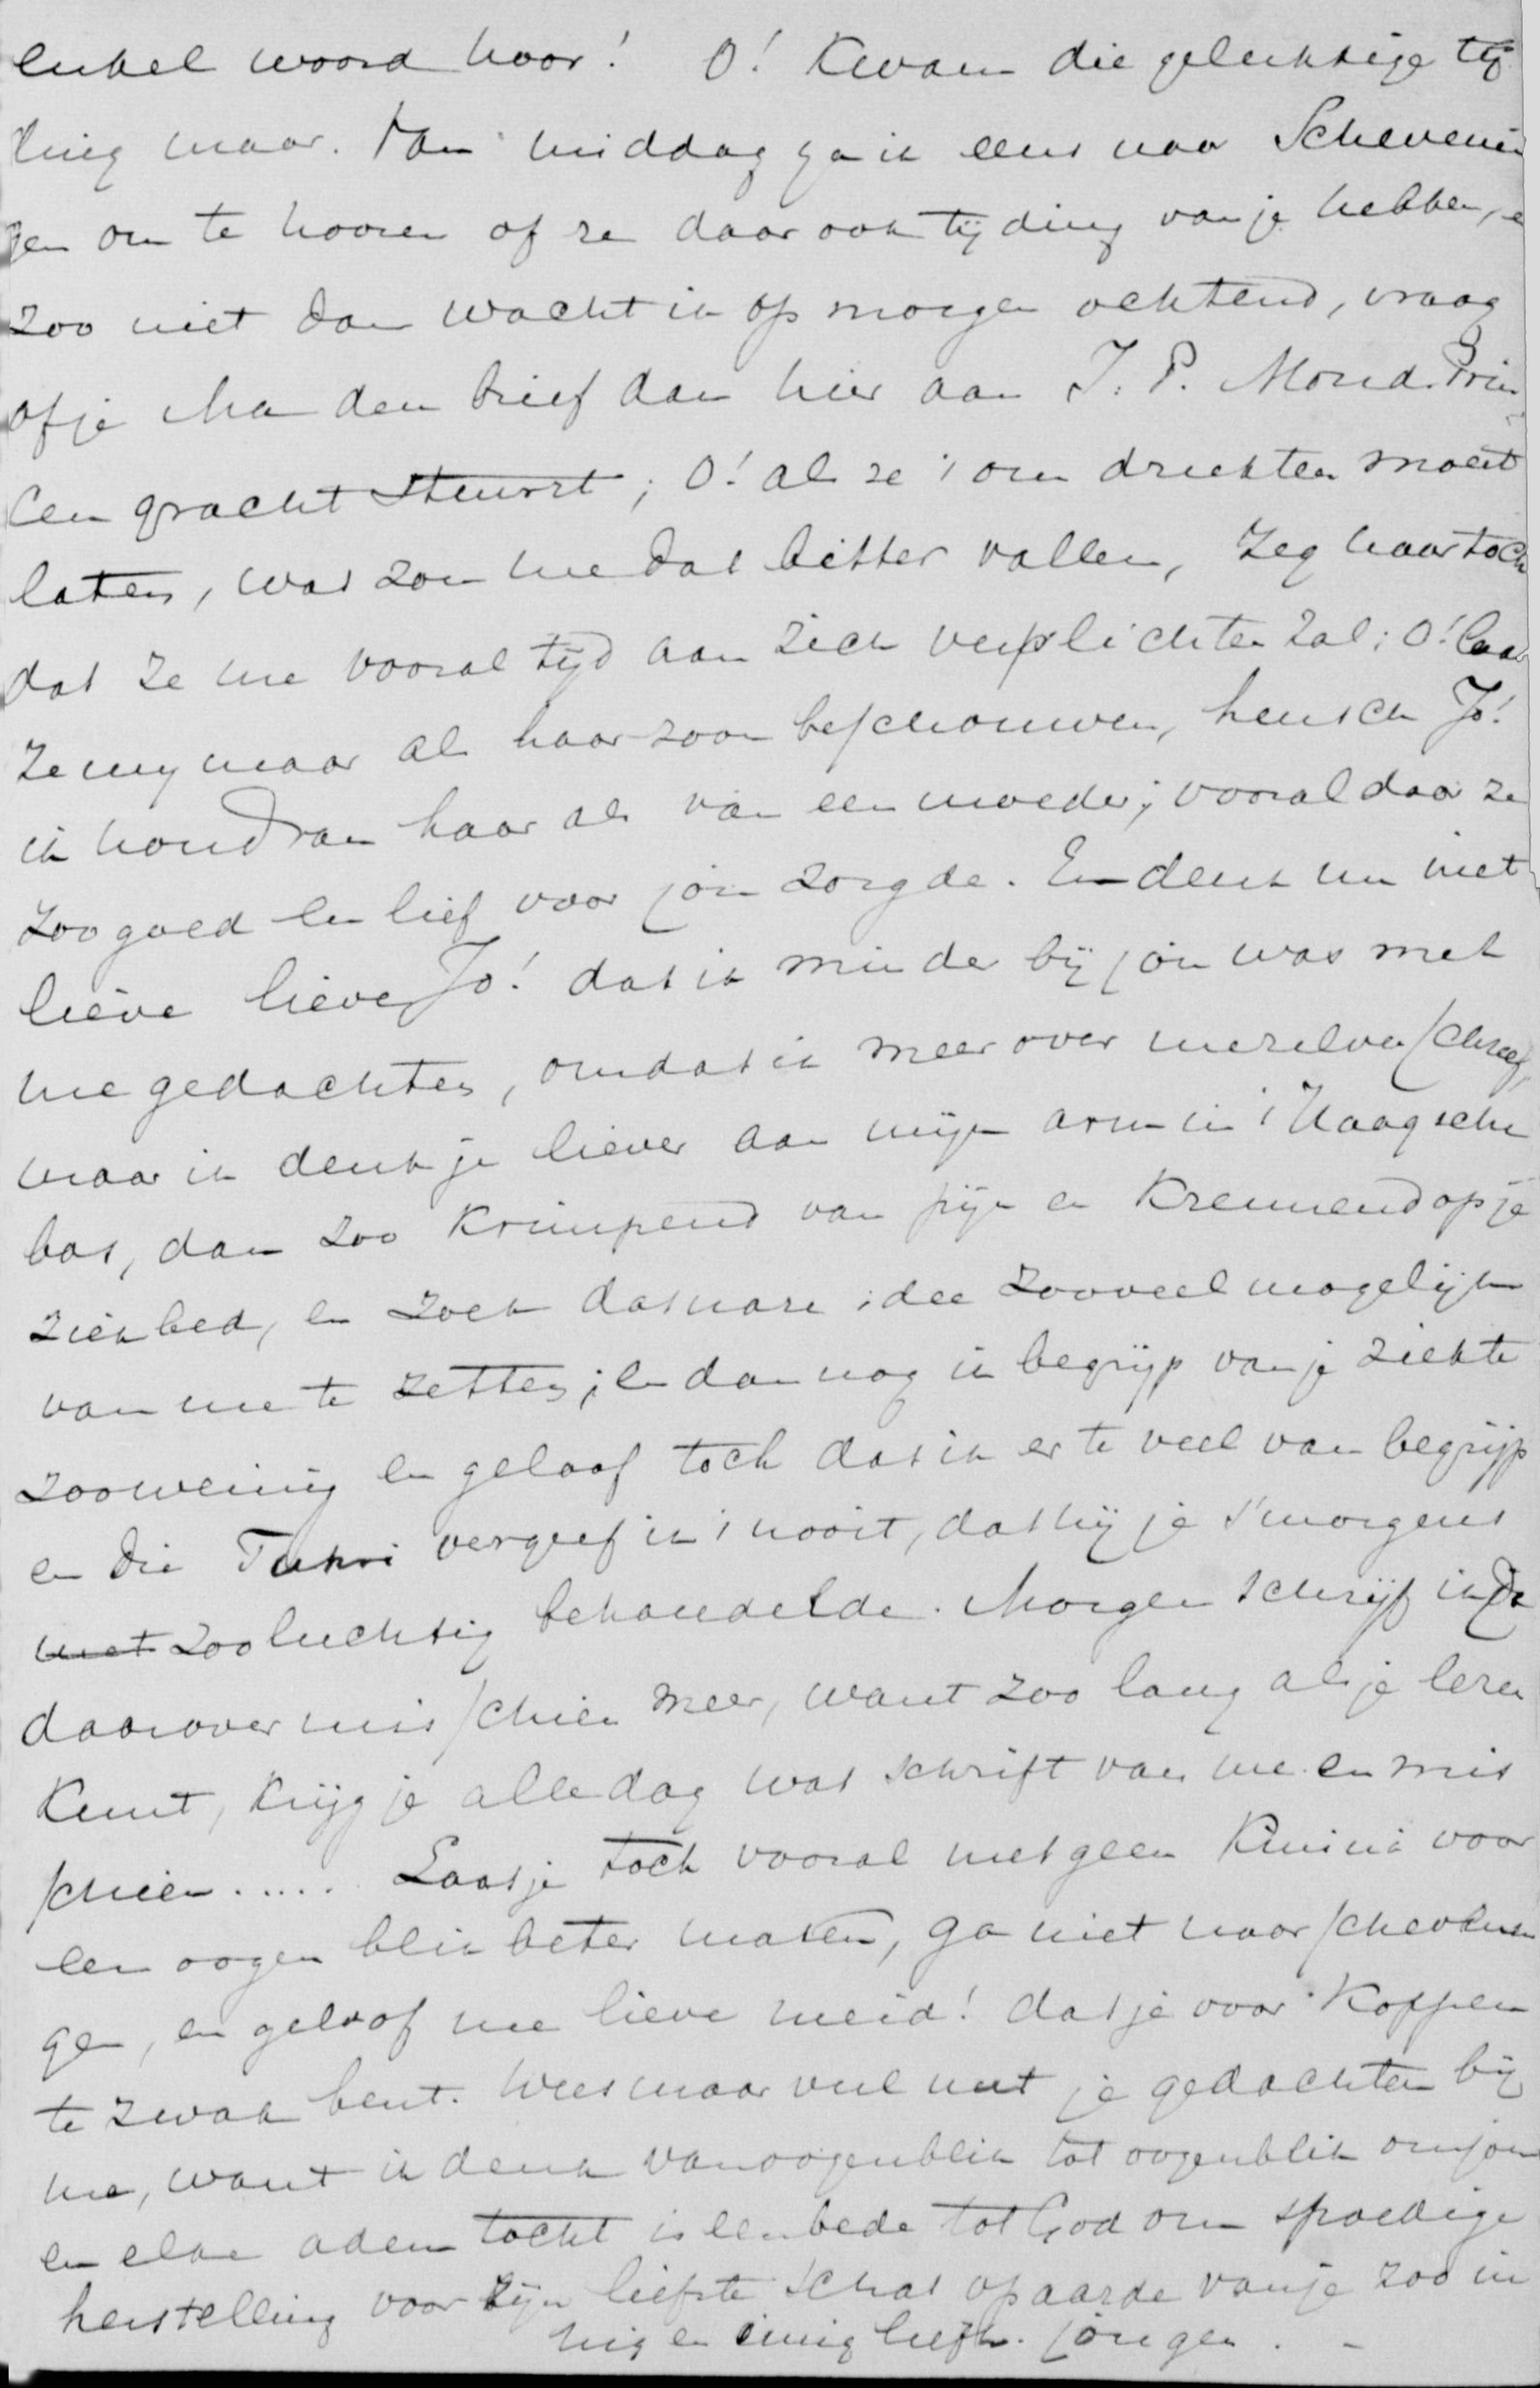 enkel woord hoor! O! Kwam die gelukkige tij
ding maar. Van middag ga ik eens naar Schevenin
gen om te hooren of ze daar ook tijding van je hebben, e
zoo niet dan wacht ik op morgen ochtend, vraag
of je Ma den brief dan hier aan J. P. Mond. Prin
cen gracht stuurt; O! als ze 't om drukten moest
laten, wat zou me dat bitter vallen, zeg haar toch
dat ze me vooral tijd aan zich verplichten zal; O! laat
ze mij maar als haar zoon beschouwen, heusch Jo!
ik houd van haar als van een moeder; vooral daar ze
zoo goed en lief voor jou zorgde. En denk nu niet
lieve lieve Jo! dat ik minder bij jou was met
me gedachten, omdat ik meer over mezelven schreef,
maar ik denk je liever aan mijn arm in 't Haagsche
bos, dan zoo krimpend van pijn en kreunend op je
ziekbed, en zoek dat nare idee zooveel mogelijk
van me te zetten; en dan nog ik begrijp van je ziekte
zoo weinig en geloof toch dat ik er te veel van begrijp
en die Tukri vergeef ik 't nooit, dat hij je 's morgens
met zoo luchtig behandelde. Morgen schrijf ik Da
daarover misschien meer, want zoo lang als je lezen
kunt, krijg je alle dag wat schrift van me en mis
schien..... Laat je toch vooral met geen Kinine voor
een oogen blik beter maken, ga niet naar schevenin
gen, en geloof me lieve meid! dat je voor Koppen
te zwak bent. Wees maar veel met je gedachten bij
me, want ik denk van oogenblik tot oogenblik om jou
en elke adem tocht is een bede tot God om spoedige
herstelling voor zijn liefste schat op aarde van je zoo in
nig en innig liefh. jongen. -